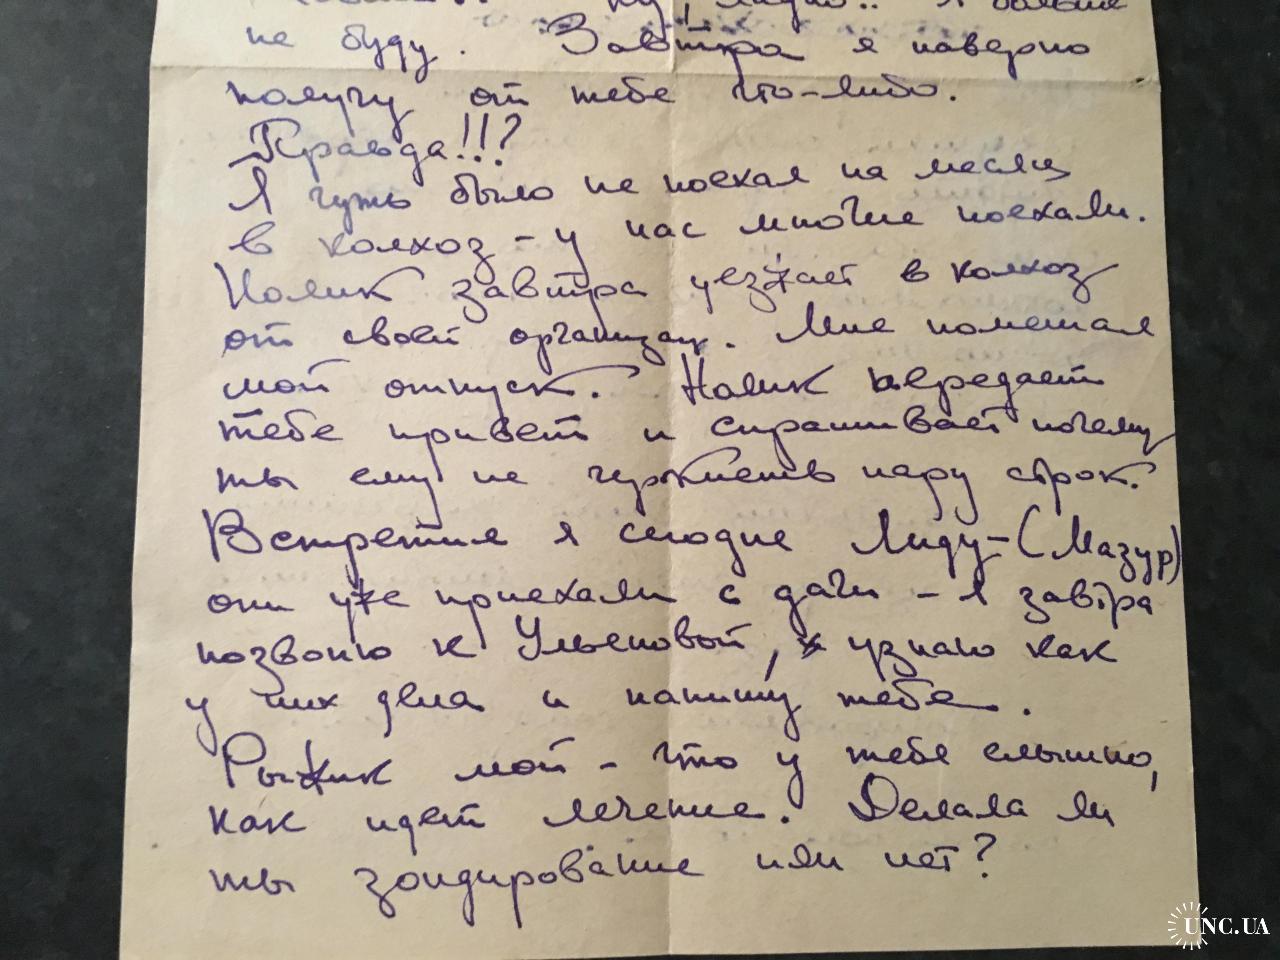 Ну, ладно.. Я больше
не буду. Завтра я наверно
получу от тебе что-либо.
Правда!!?
Я чуть было не поехал на месяц
в колхоз - у нас многие поехали.
Нолик завтра уезжает в колхоз
от своей организац. Мне помешал
мой отпуск. Нолик передает
тебе привет и спрашивает почему
ты ему не черкнешь пару строк.
Встретил я сегодне Лиду-(Мазур)
они уже приехали с дачи - я завтра
позвоню к Ульеновой, узнаю как
у них дела и напишу тебе.
Рыжик мой - что у тебе слышно,
как идет лечение. Делала ли
ты зондирование или нет?
UNC.UA